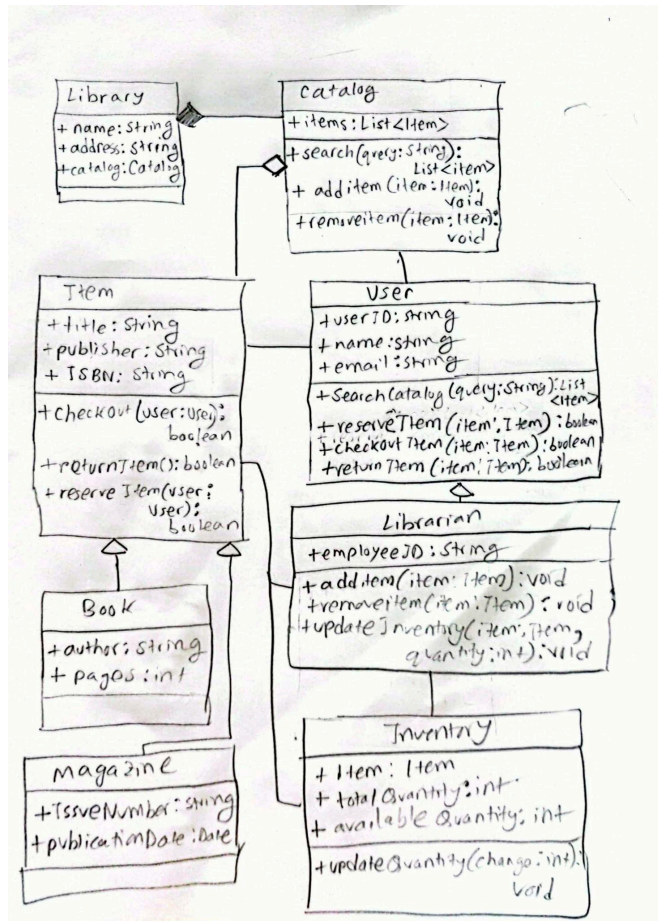 Library
+ name: String
+ address: String
+ catalog: Catalog
Catalog
+ items: List<Item>
+ search(query: String):
List<item>
+ additem (item: Item):
void
+ removeitem(item: Item):
void
Item
+ title: String
+ publisher: String
+ ISBN: String
+ checkout (user: User):
boolean
+ returnItem(): boolean
+ reserve Item(user:
User):
boolean
User
+ userID: String
+ name: string
+ email: string
+ Searchcatalog (query: String): List
<Item>
+ reserveItem (item: Item): boolean
+ checkout Item (item: Item): boolean
+ return Item (item: Item): boolean
Librarian
+ employeeID: String
+ additem(item: Item): void
+ removeitem(item: Item): void
+ update Inventory(item: Item,
quantity: int): void
Book
+ author: string
+ pages: int
Magazine
+ IssueNumber: string
+ publicationDate: Date
Inventory
+ Item: Item
+ total Quantity: int
+ available Quantity: int
+ updateQuantity(change: int):
void